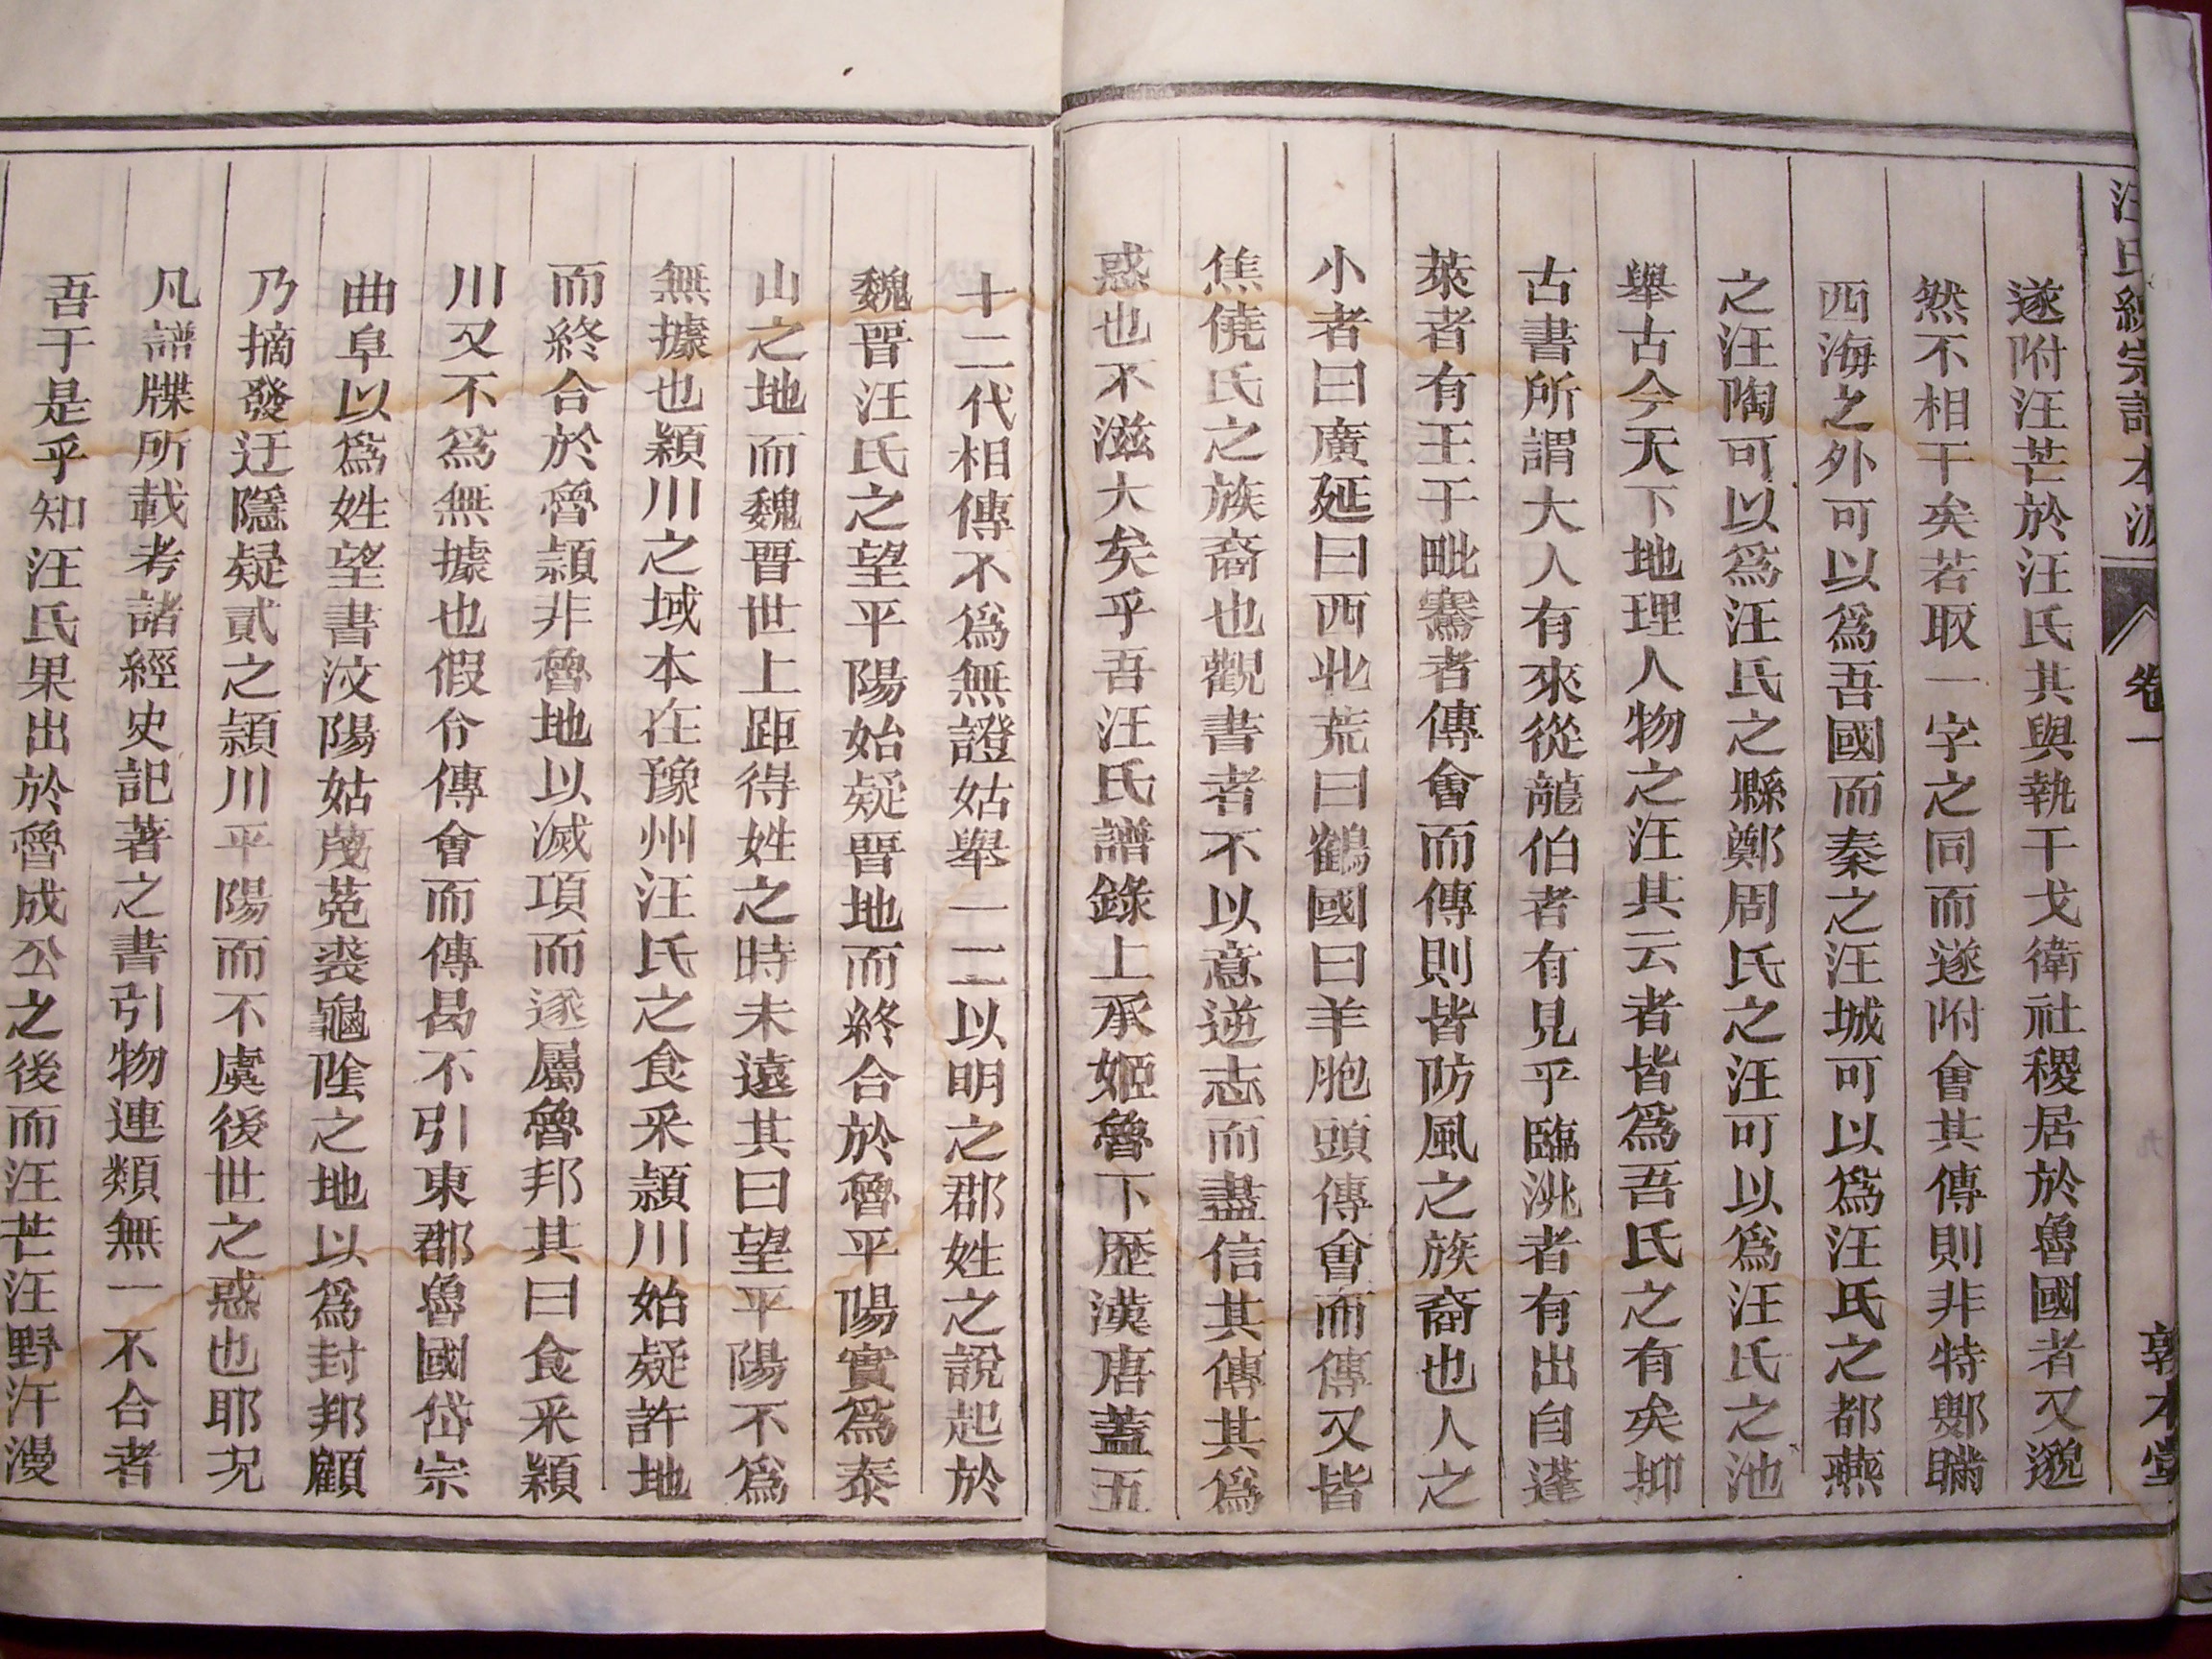 汪氏統宗譜本源 卷一 敦本堂
遂附汪芒於汪氏其與執干戈衛社稷居於魯國者又邈
然不相干矣若取一字之同而遂附會其傳則非特鄋瞞
西海之外可以爲吾國而秦之汪城可以爲汪氏之都燕
之汪陶可以爲汪氏之縣鄭周氏之汪可以爲汪氏之池
舉古今天下地理人物之汪其云者皆爲吾氏之有矣抑
古書所謂大人有來從龍伯者有見乎臨洮者有出自蓬
萊者有王于毗騫者傳會而傳則皆防風之族裔也人之
小者曰廣延曰西北荒曰鶴國曰羊胞頭傳會而傳又皆
焦僥氏之族裔也觀書者不以意逆志而盡信其傳其爲
惑也不滋大矣乎吾汪氏譜錄上承姬魯下歷漢唐蓋五
十二代相傳不爲無證姑舉一二以明之郡姓之說起於
魏晉汪氏之望平陽始疑晉地而終合於魯平陽實爲泰
山之地而魏晉世上距得姓之時未遠其曰望平陽不爲
無據也潁川之域本在豫州汪氏之食采潁川始疑許地
而終合於魯潁非魯地以滅項而遂屬魯邦其曰食采潁
川又不爲無據也假令傳會而傳曷不引東郡魯國岱宗
曲阜以爲姓望書汶陽姑蔑菟裘龜陰之地以爲封邦顧
乃摘發迂隱疑貳之潁川平陽而不虞後世之惑也耶况
凡譜牒所載考諸經史記著之書引物連類無一不合者
吾于是乎知汪氏果出於魯成公之後而汪芒汪野汗漫